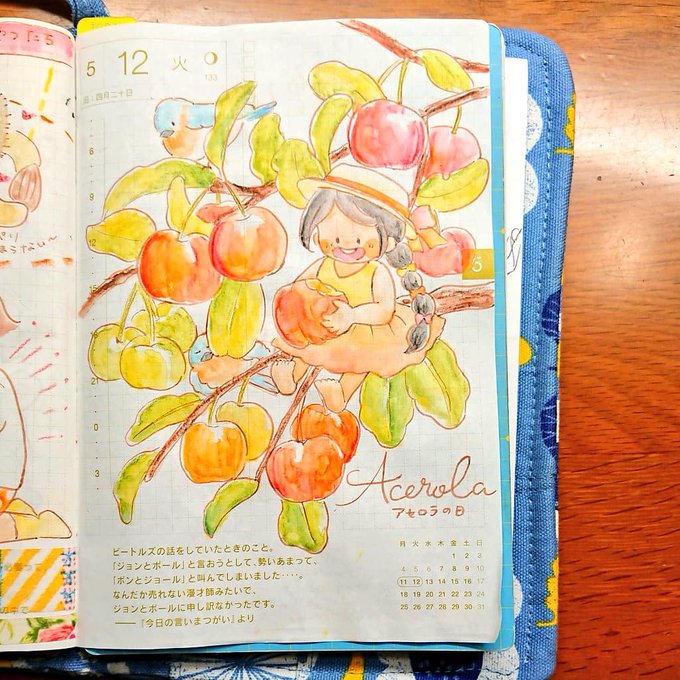 5 12 火
133
四月二十日
6
9
12
15
21
0
3
5
Acerola
アセロラの日
ビートルズの話をしていたときのこと。
「ジョンとポール」と言おうとして、勢いあまって、
「ポンとジョール」と叫んでしまいました‥‥。
なんだか売れない漫才師みたいで、
ジョンとポールに申し訳なかったです。
――『今日の言いまつがい』より
月 火 水 木 金 土 日
1 2 3
4 5 6 7 8 9 10
11 12 13 14 15 16 17
18 19 20 21 22 23 24
25 26 27 28 29 30 31